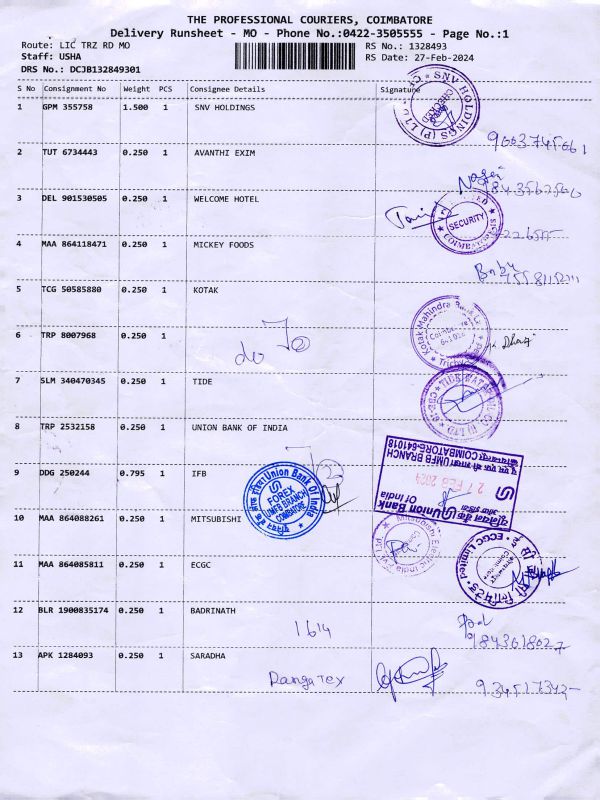 THE PROFESSIONAL COURIERS, COIMBATORE
Delivery Runsheet - MO - Phone No.:0422-3505555 - Page No.:1
Route: LIC TRZ RD MO RS No.: 1328493
Staff: USHA RS Date: 27-Feb-2024
DRS No.: DCJB132849301
S No Consignment No Weight PCS Consignee Details Signature
1 GPM 355758 1.500 1 SNV HOLDINGS
SNV HOLDINGS (P) LTD
CHECKED
9003745661
2 TUT 6734443 0.250 1 AVANTHI EXIM
3 DEL 901530505 0.250 1 WELCOME HOTEL
SECURITY
4 MAA 864118471 0.250 1 MICKEY FOODS
Baby
5 TCG 50585880 0.250 1 KOTAK
Kotak Mahindra Bank
6 TRP 8007968 0.250 1
do
7 SLM 340470345 0.250 1 TIDE
TIDE WATER OIL CO
8 TRP 2532158 0.250 1 UNION BANK OF INDIA
9 DDG 250244 0.795 1 IFB
Union Bank Of India
FOREX
UMFB BRANCH
COIMBATORE
यूनियन बैंक Union Bank
Of India
27 FEB 2024
UMFB BRANCH
COIMBATORE-641018
10 MAA 864088261 0.250 1 MITSUBISHI
Mitsubishi Electric India PVT
11 MAA 864085811 0.250 1 ECGC
ECGC Limited
12 BLR 1900835174 0.250 1 BADRINATH
1614
9843618027
13 APK 1284093 0.250 1 SARADHA
Ranga Tex